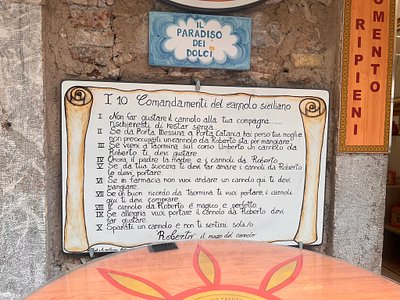 IL
PARADISO
DEI
DOLCI
I 10 Comandamenti del cannolo siciliano
I Non far gustare il cannolo alla tua compagna.....
rischieresti di restar senza
II Se da Porta Messina a Porta Catania hai perso tua moglie
non preoccuparti un cannolo da Roberto sta per mangiare.
III Se vieni a Taormina sul corso Umberto un cannolo da
Roberto ti devi gustare
IV Onora il padre la madre e i cannoli da Roberto
V Se da tua suocera ti devi far amare i cannoli da Roberto
le devi portare
VI Se in farmacia non vuoi andare un cannolo qui ti devi
mangiare
VII Se un buon ricordo da Taormina vuoi portare i cannoli
qui ti devi comprare
VIII Il cannolo da Roberto è magico e perfetto
IX Se allegria vuoi portare il cannolo da Roberto devi
far gustare
X Sparati un cannolo e non ti sentirai solo/a
"Roberto" il mago del cannolo
OMENTO
RIPIENI